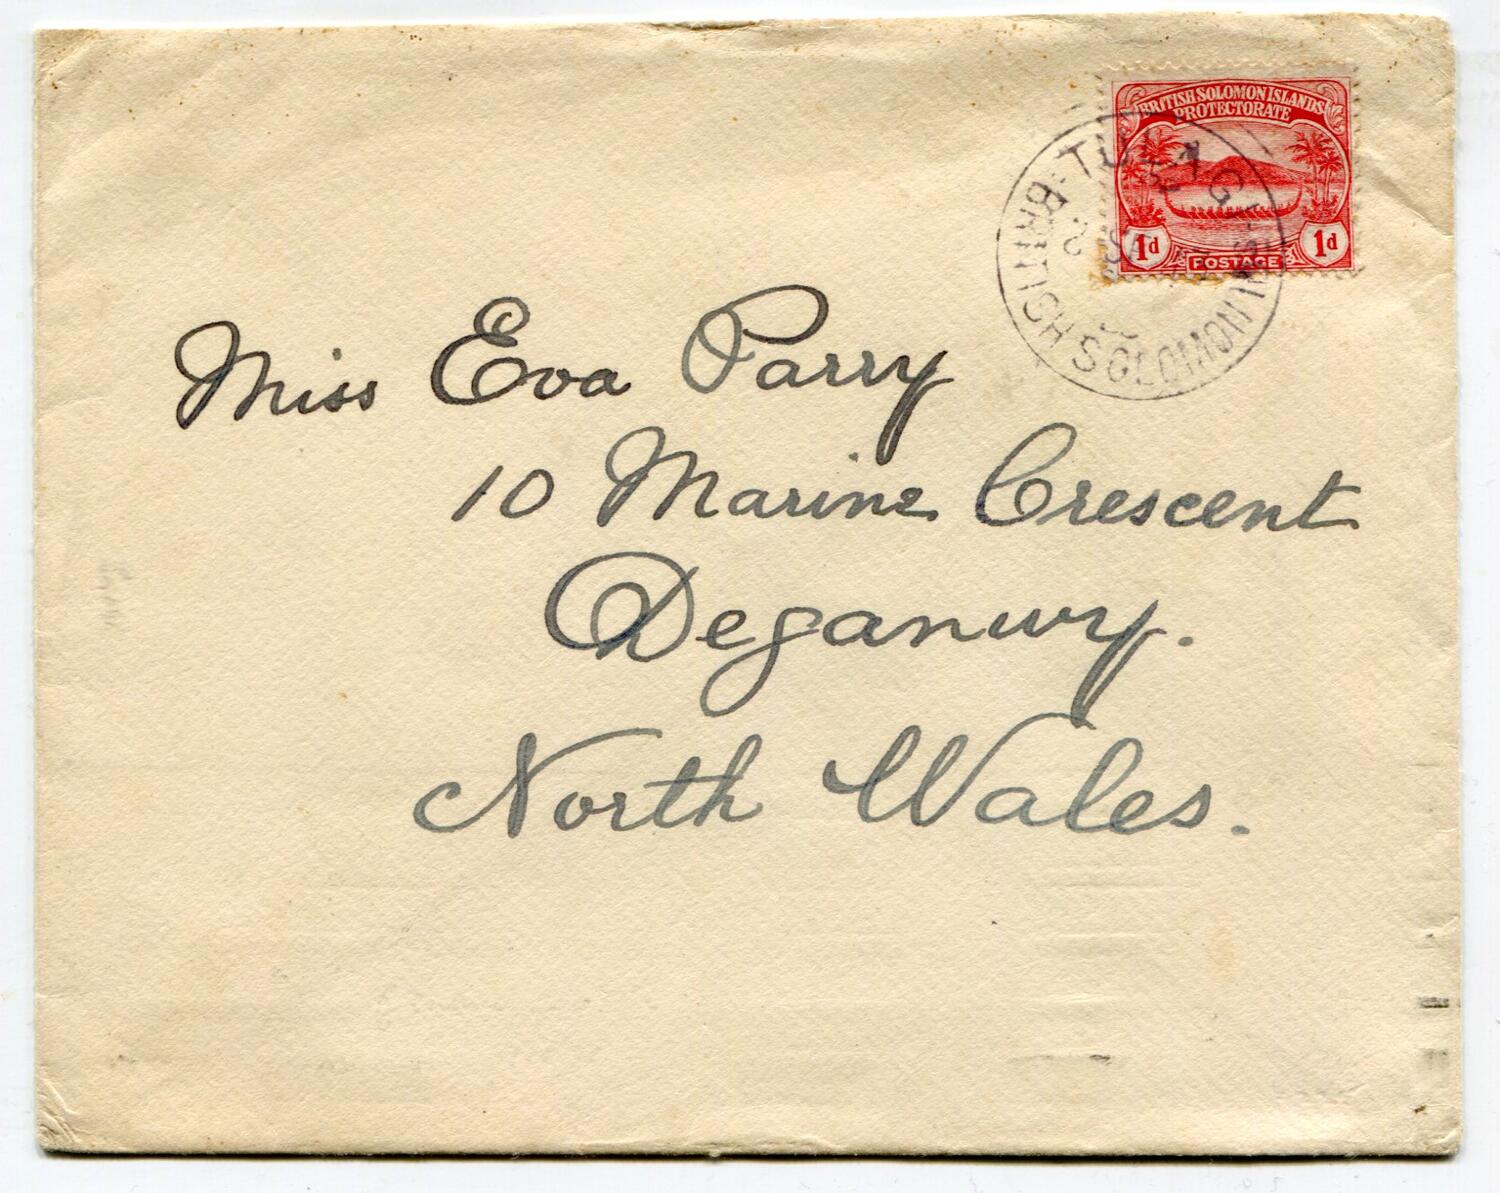 BRITISH SOLOMON ISLANDS
PROTECTORATE
1d
POSTAGE
1d
TULAGI
BRITISH SOLOMON IS
Miss Eva Parry
10 Marine Crescent
Deganwy.
North Wales.